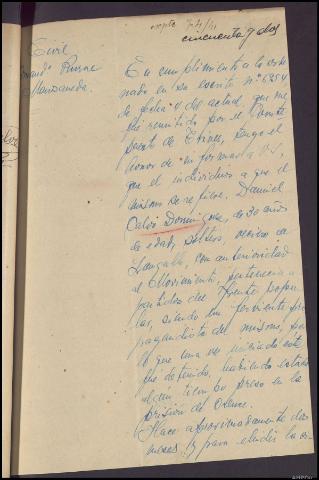 expte 74/41
cincuenta y dos
Civil
Puesto
Manzaneda.
En cumplimiento a lo orde
nado en su escrito nº 6354
de fecha 4 del actual, que me
fué remitido por el Coman
dante de Trives, tengo el
honor de informar a V.S.
que el individuo a que el
mismo se refiere, Daniel
Calvo Dominguez, de 30 años
de edad, soltero, vecino de
Langullo, con anterioridad
al Movimiento, pertenecía a
partidos del Frente popu
lar, siendo un ferviente pro
pagandista del mismo, por
lo que una vez iniciado este
fué detenido, habiendo estado
algún tiempo preso en la
prisión de Orense.
Hace aproximadamente dos
meses y para eludir la or